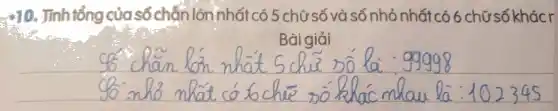 *10. Tính tổng của số chẵn lớn nhất có 5 chữ số và số nhỏ nhất có 6 chữ số khác r
Bài giải
Số chẵn lớn nhất 5 chữ số là : 99998
Số nhỏ nhất có 6 chữ số khác nhau là : 102345